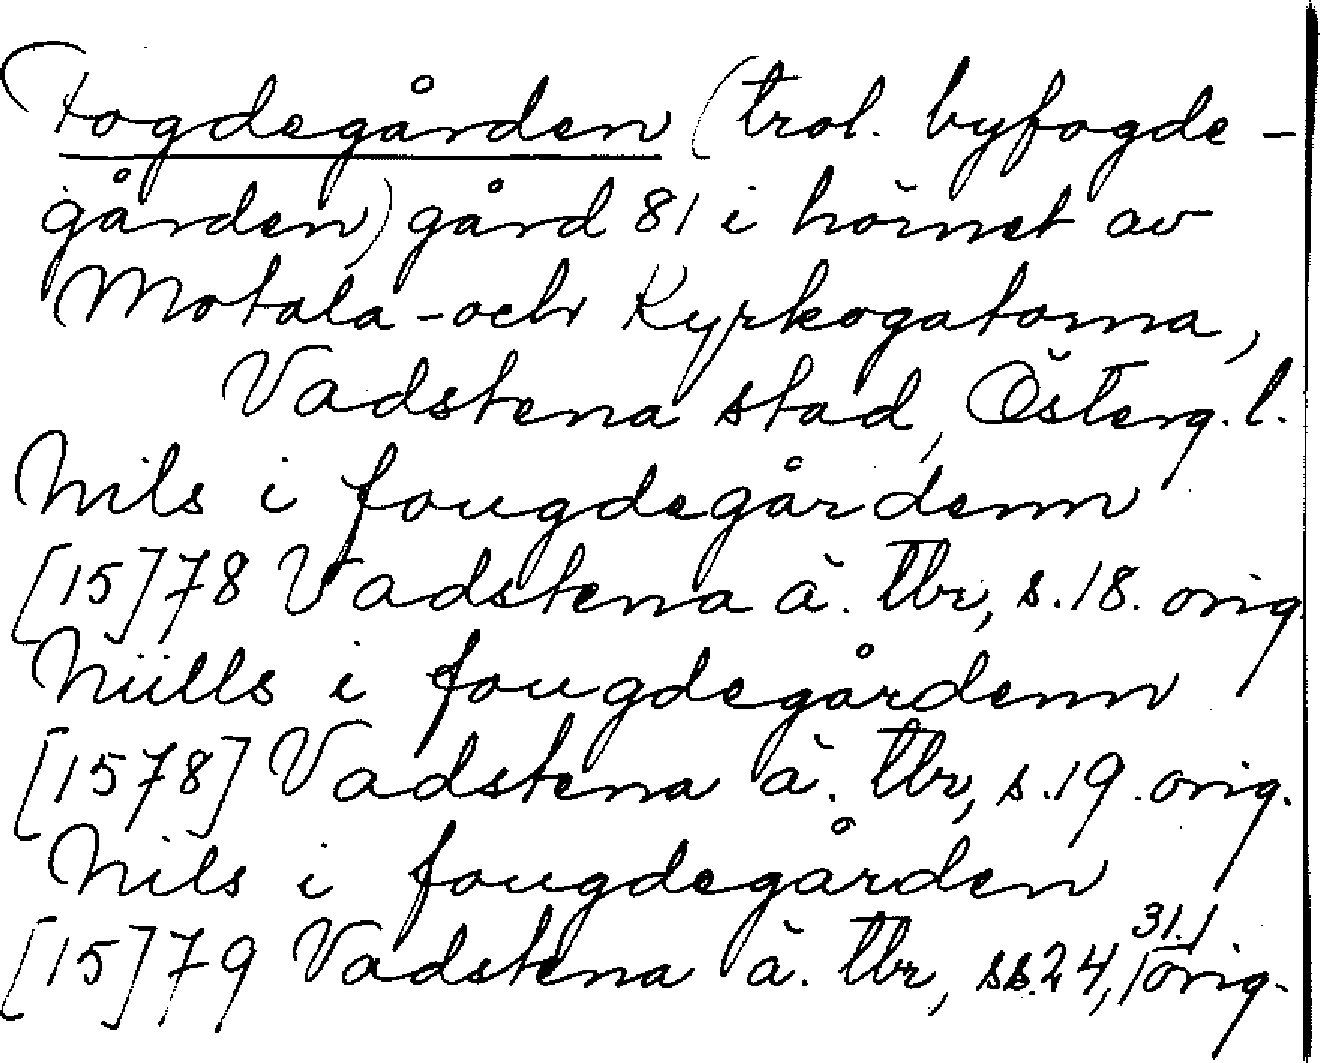 Fogdegården (trol. byfogde-
gården) gård 81 i hörnet av
Motala- och Kyrkogatorna,
Vadstena stad, Österg. l.
Nils i fougdegårdenn
[15]78 Vadstena ä. Tbr, s. 18. orig.
Niills i fougdegårdenn
[1578] Vadstena ä. Tbr, s. 19. orig.
Nils i fougdegården
[15]79 Vadstena ä. Tbr, ss. 24, 31. orig.